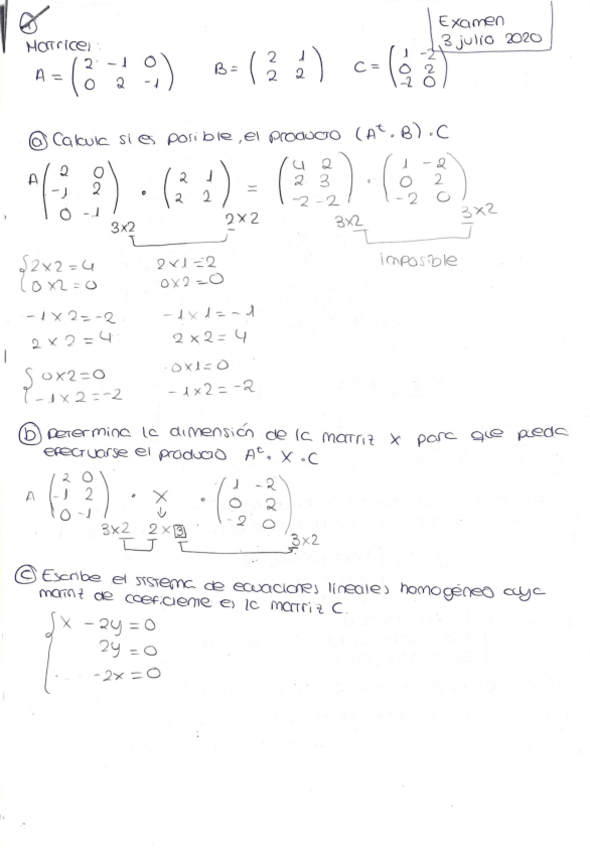 1
Examen
3 julio 2020
Matrices:
A = ( 2 -1 0 / 0 2 -1 ) B = ( 2 1 / 2 2 ) C = ( 1 -2 / 0 2 / -2 0 )
a) Calcula si es posible, el producto (Aᵗ · B) · C
A ( 2 0 / -1 2 / 0 -1 ) · ( 2 1 / 2 2 ) = ( 4 2 / 2 3 / -2 -2 ) · ( 1 -2 / 0 2 / -2 0 )
3x2 2x2 3x2 3x2
imposible
2x2=4 2x1=2
0x2=0 0x2=0
-1x2=-2 -1x1=-1
2x2=4 2x2=4
0x2=0 0x1=0
-1x2=-2 -1x2=-2
b) Determina la dimensión de la matriz X para que pueda
efectuarse el producto Aᵗ · X · C
A ( 2 0 / -1 2 / 0 -1 ) · X · ( 1 -2 / 0 2 / -2 0 )
↓
3x2 2x3 3x2
c) Escribe el sistema de ecuaciones lineales homogéneo cuya
matriz de coeficiente es la matriz C.
x - 2y = 0
2y = 0
-2x = 0